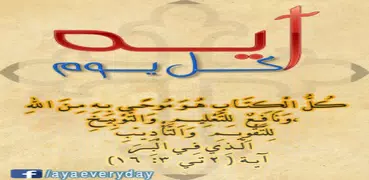 آيه
كل يوم
كُلُّ الْكِتَابِ هُوَ مُوحًي بِهِ مِنَ اللهِ
،وَنَافِعٌ لِلتَّعْلِيمِ وَالتَّوْبِيخِ
لِلتَّقْوِيمِ وَالتَّأْدِيبِ
الَّذِي فِي الْبِرِّ
آية (٢ تي ٣: ١٦)
f /ayaeveryday